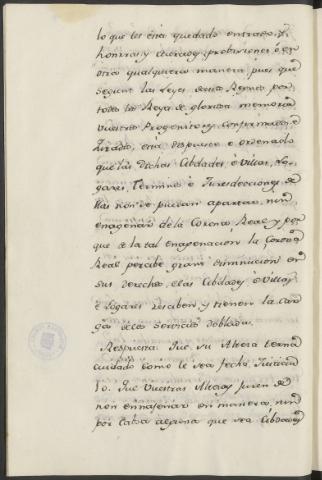 lo que les está quedado entrado, y
honrras y mercedes, probisiones ó por
otra qualquiera manera, pues que
segunt las Leyes destos Regnos por
todos los Reyes de gloriosa memoria
vuestros Progenitores confirmadas, e
Juradas, está dispuesto e ordenado
que las dichas Cibdades è Villas, Lo-
gares, Terminos è Juresdecciones de
llas non se puedan apartar, nin
enagenar de la Corona Real, y por
que de la tal enagenación la Corona
Real percibe grand diminucion en
sus derechos, e las Cibdades, è Villas
è Logares resciben, y tienen la car-
ga de los servicios doblada.
Respuesta. Que su Alteza terná
cuidado como le sea fecha Justicia
Que Vuestras Altezas juren de
non ennagenar en manera, nin
por cabsa alguna que sea Cibdades